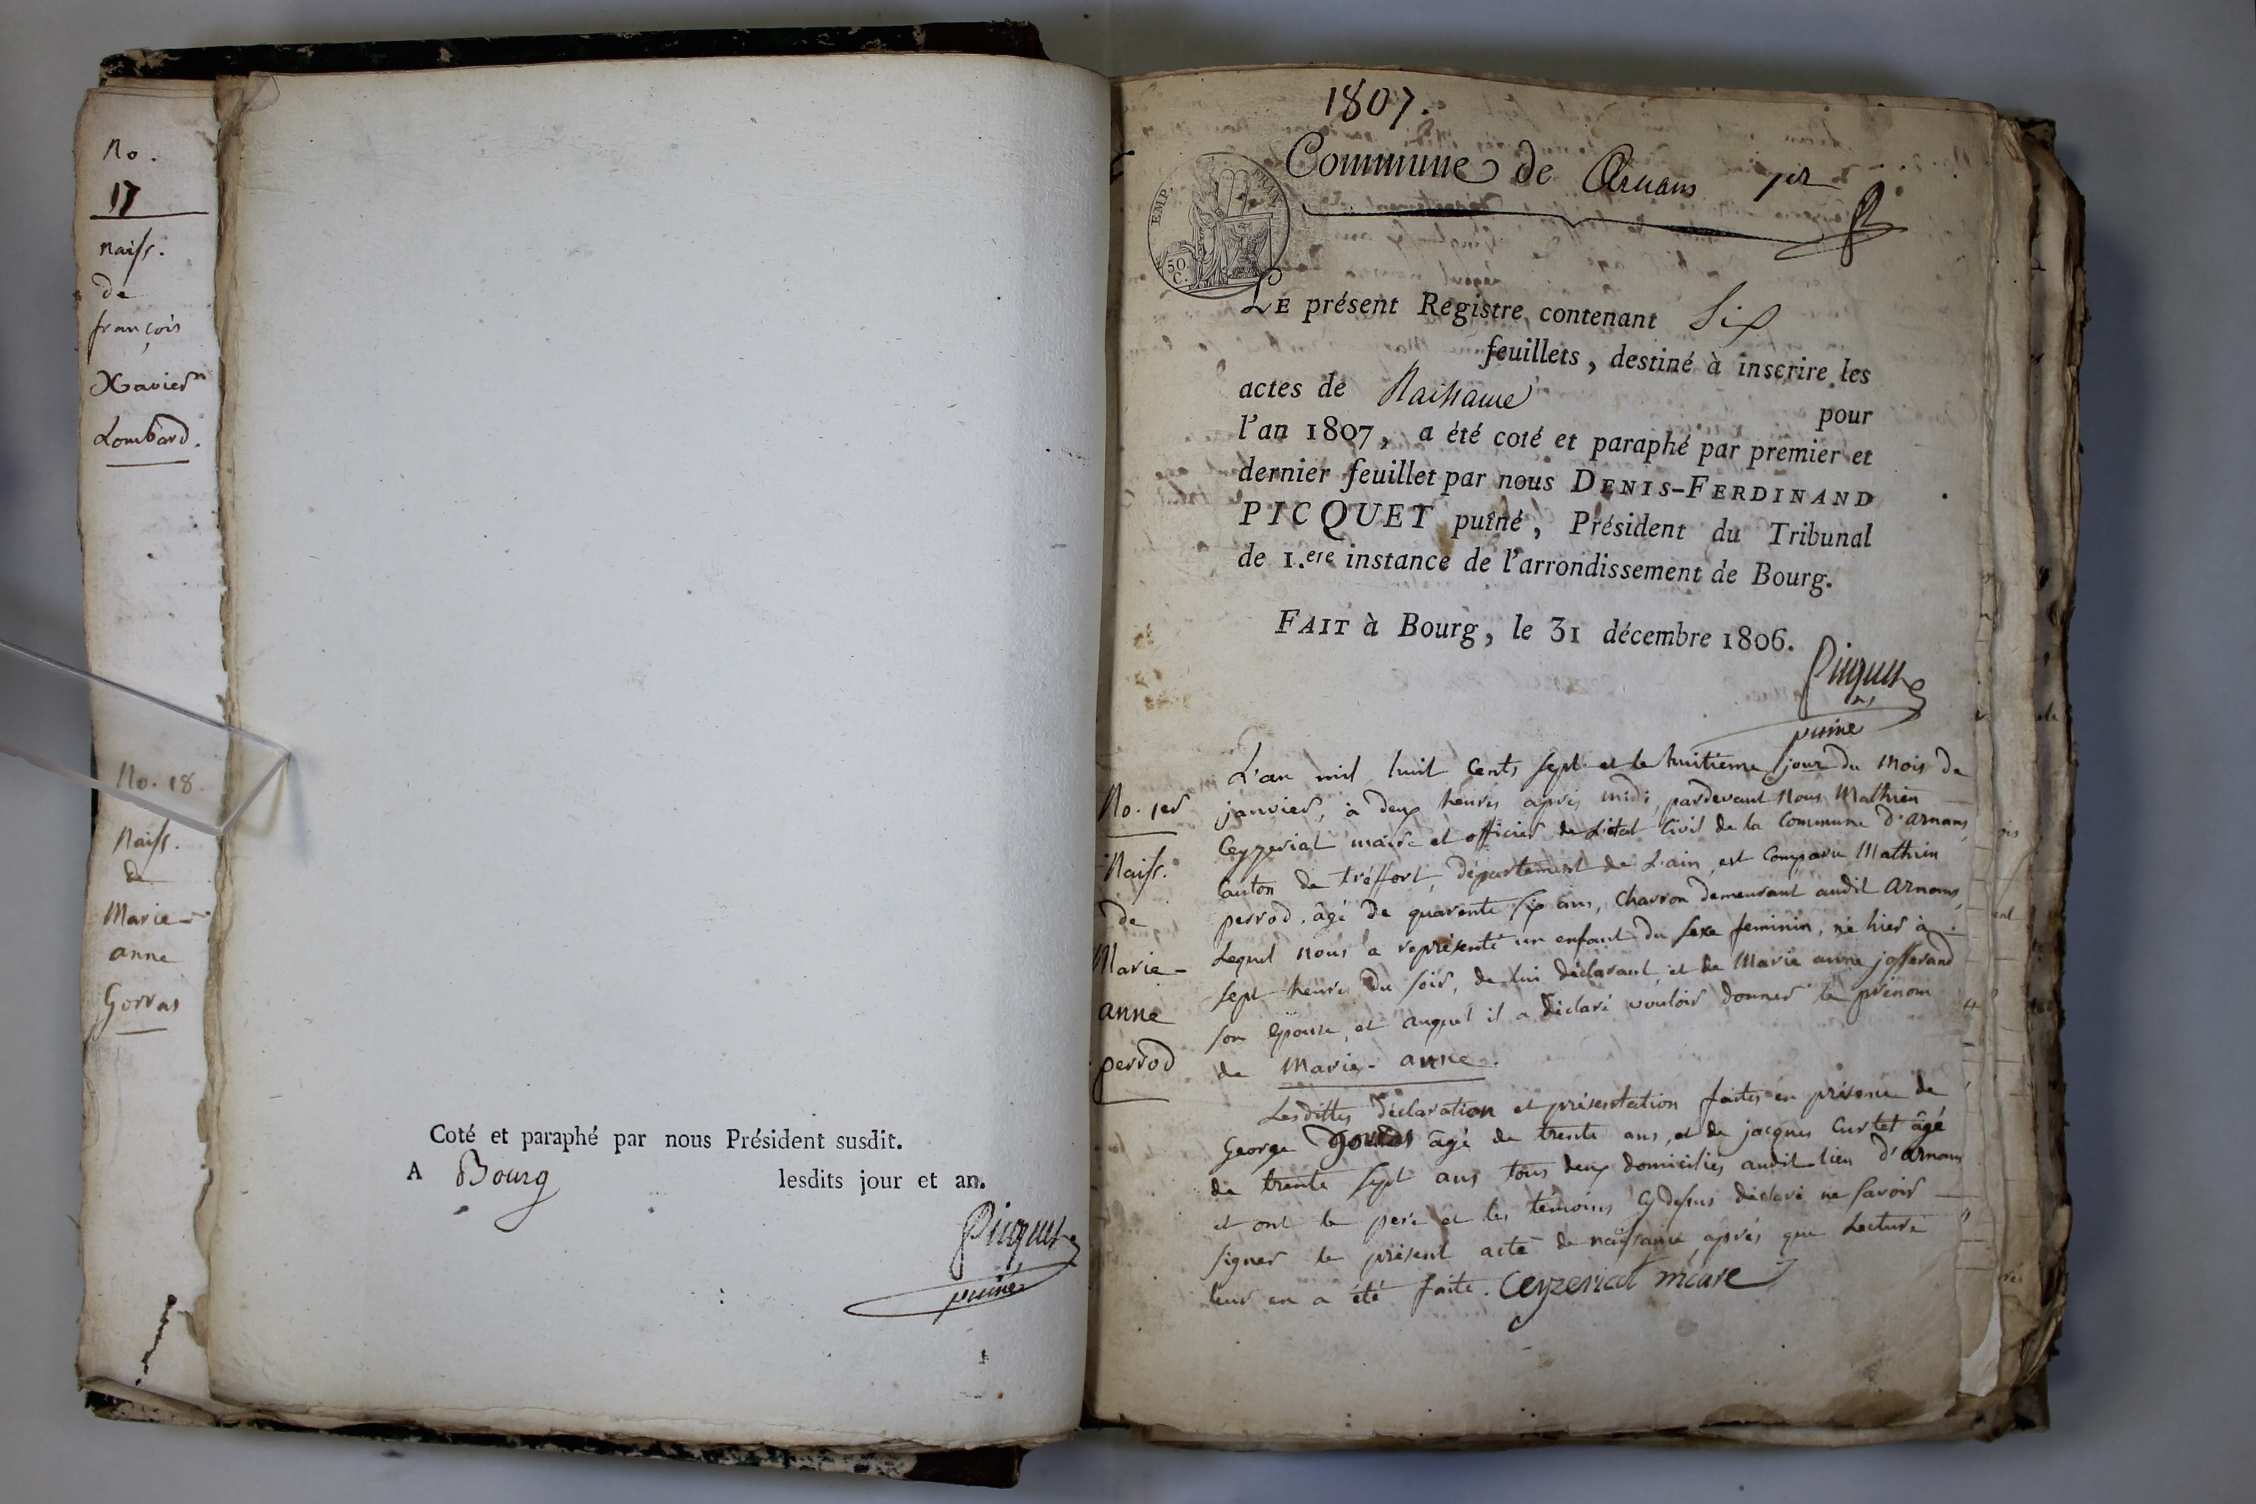 No.
17
Naiss.
de
françois
Xavier
Lombard.
No. 18.
Naiss.
de
Marie-
anne
Gorras
Coté et paraphé par nous Président susdit.
A Bourg lesdits jour et an.
Picquet
puiné
1807.
Commune de Arnans 1er
EMP. FRAN.
50
C.
LE présent Registre contenant Six
feuillets, destiné à inscrire les
actes de Naissance pour
l'an 1807, a été coté et paraphé par premier et
dernier feuillet par nous DENIS-FERDINAND
PICQUET puîné, Président du Tribunal
de 1.ere instance de l'arrondissement de Bourg.
FAIT à Bourg, le 31 décembre 1806.
Picquet
puiné
No. 1er
Naiss.
de
Marie-
anne
perrod
L'an mil huit Cents sept et le huitième jour du Mois de
janvier, à deux heures après midi, pardevant Nous Mathieu
Ceyzeriat maire et officier de L'état Civil de la Commune d'arnans,
Canton de tréffort, département de L'ain, est Comparu Mathieu
perrod, âgé de quarente six ans, Charron demeurant audit arnans,
Lequel nous a représenté un enfant du sexe feminin, né hier à
sept heures du soir, de lui déclarant, et de Marie anne josserand
son épouse, et auquel il a déclaré vouloir donner le prénom
de Marie-anne.
Lesdittes déclaration et présentation faites en présence de
George gorras âgé de trente ans, et de jacques Curtet âgé
de trente sept ans tous deux domiciliés audit lieu d'arnans
et ont le pere et les témoins cy dessus déclaré ne savoir
signer le présent acte de naissance, après que Lecture
leur en a été faite. Ceyzeriat maire